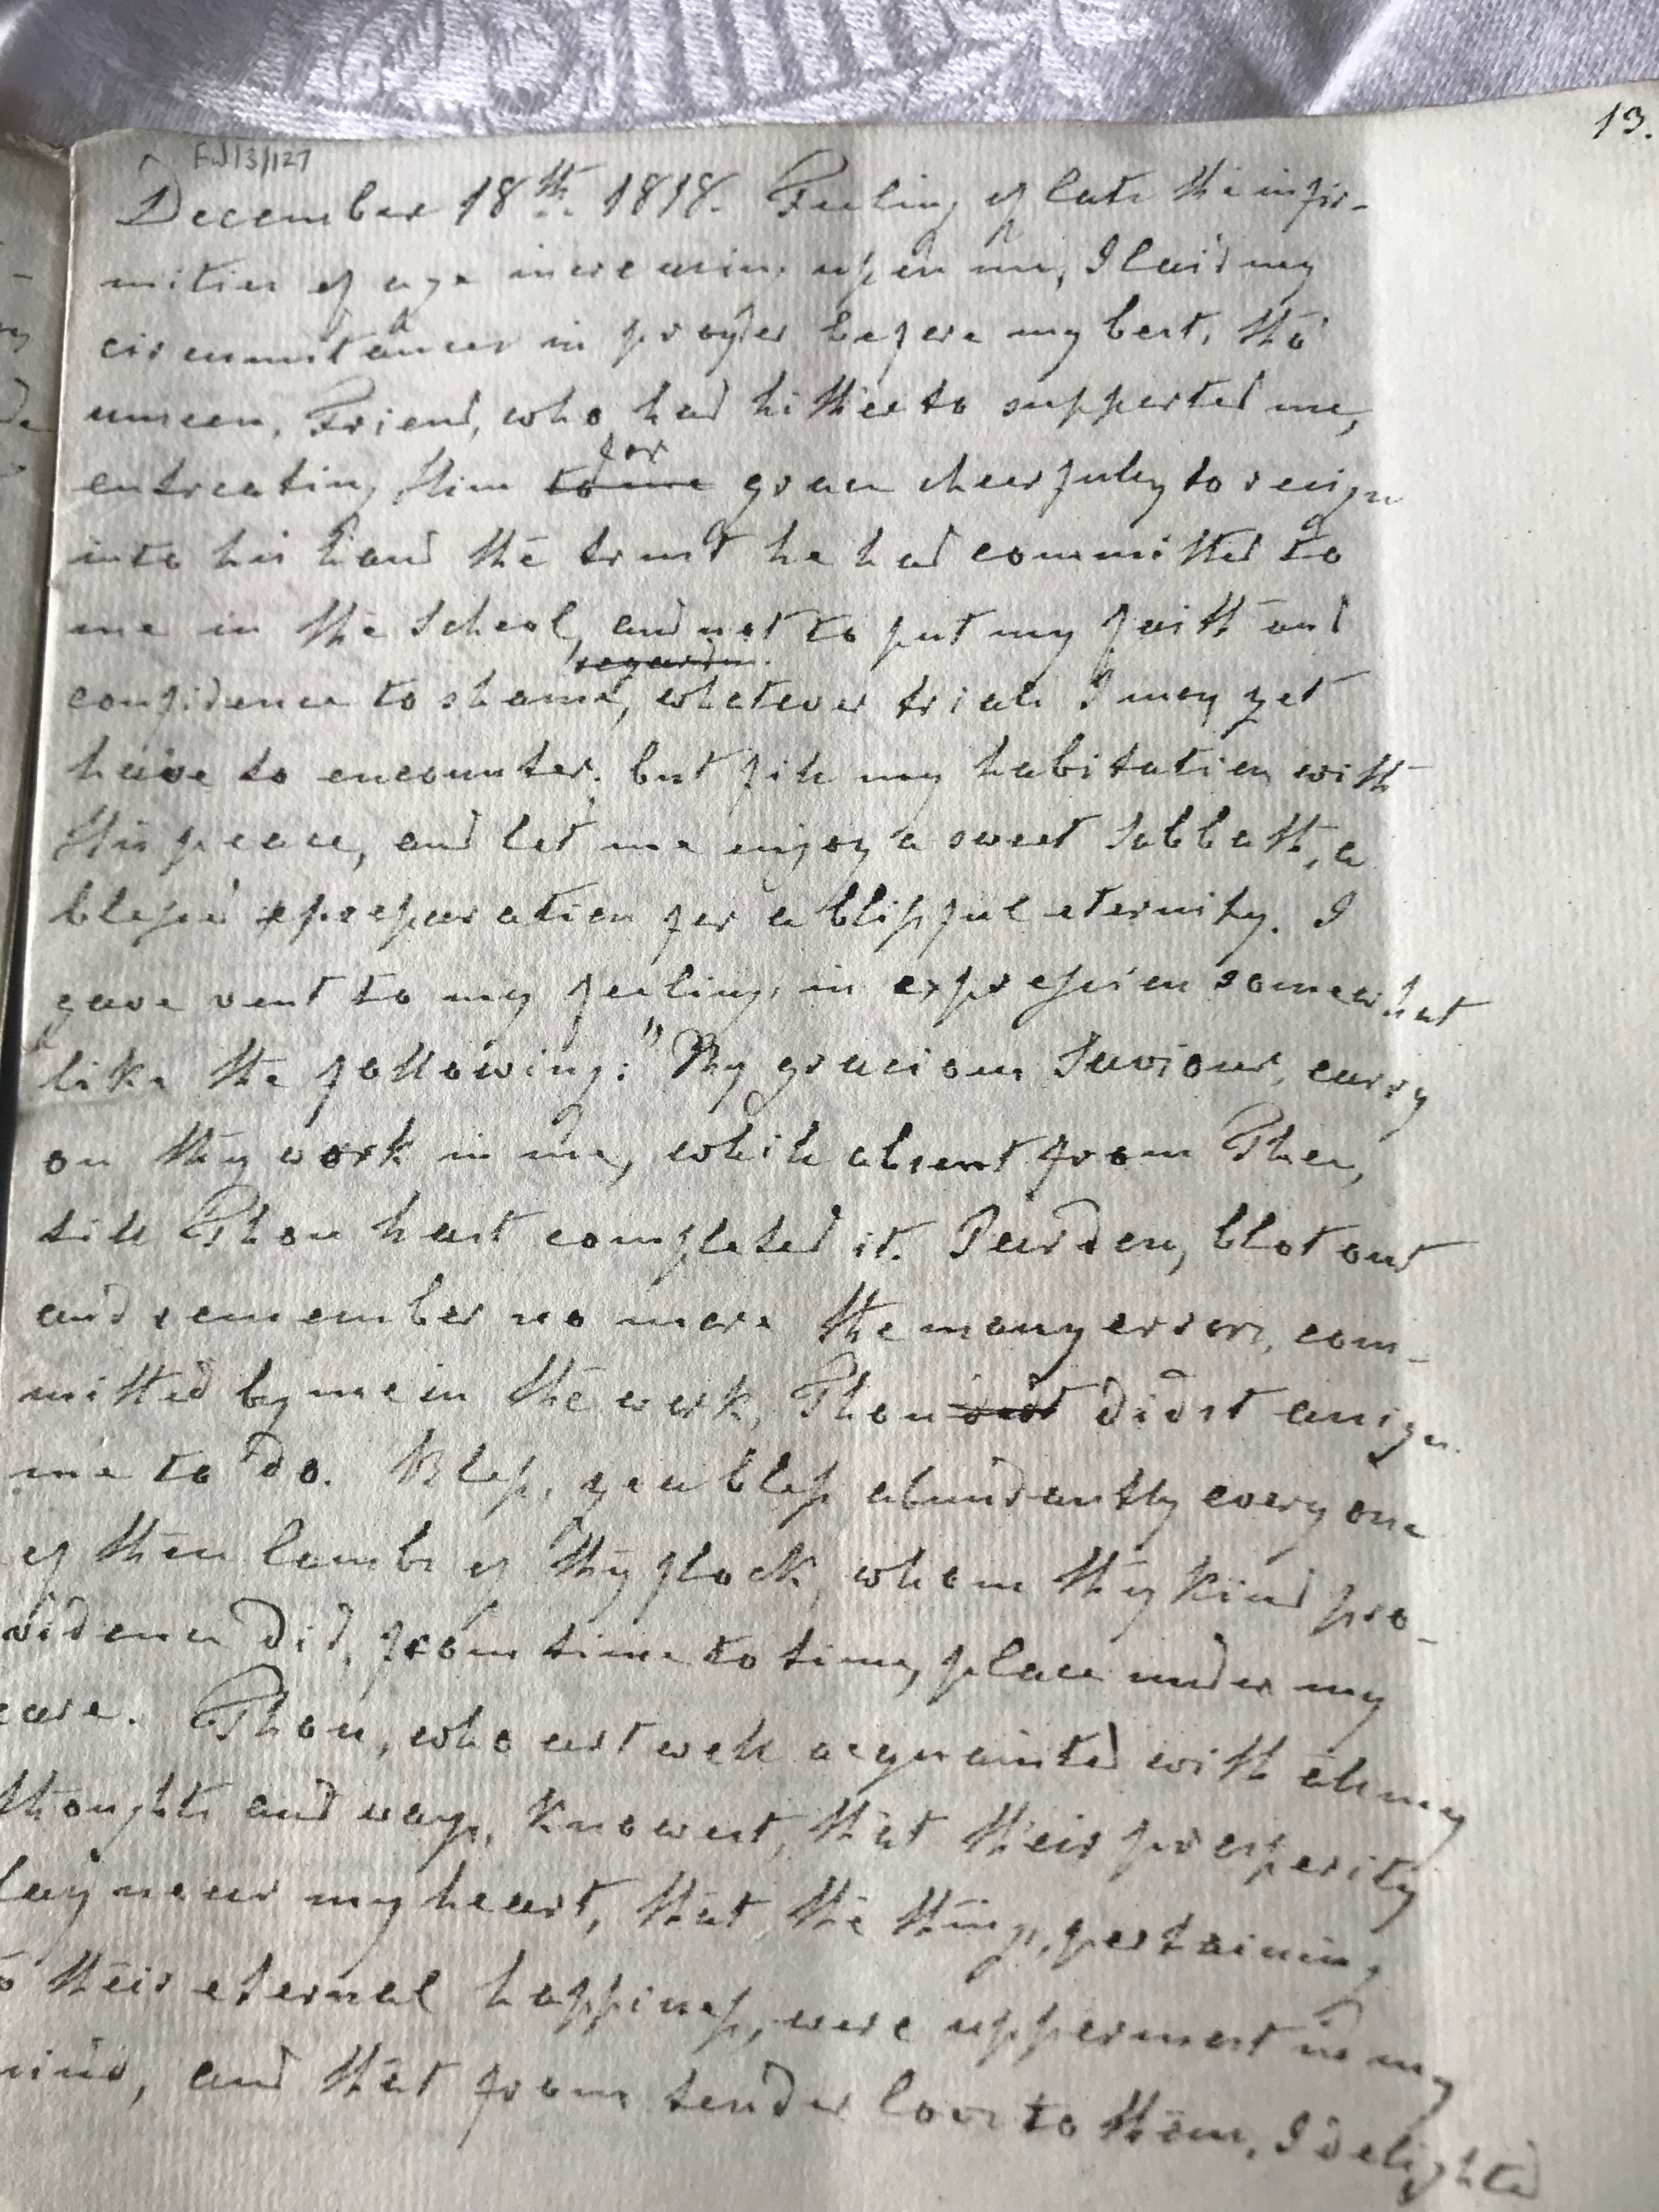 13.
FWJ/3/127
December 18th. 1818. Feeling of late the infir-
mities of age increasing upon me, I laid my
circumstances in prayer before my best, tho'
unseen, Friend, who had hitherto supported me,
for
entreating Him to me grace cheerfully to resign
into his hand the trust he had committed to
me in the School, and not to put my faith and
regardin.
confidence to shame, whatever trials I may yet
have to encounter; but fill my habitation with
His peace, and let me enjoy a sweet Sabbath, a
blessed preparation for a blissful eternity. I
gave vent to my feelings in expression somewhat
like the following: "My gracious Saviour, carry
on thy work in me, while absent from Thee,
till Thou hast completed it. Pardon, blot out
and remember no more the many errors, com-
mitted by me in the work, Thou didst assign
me to do. Bless, yea bless abundantly every one
of then lambs of thy flock, whom thy kind pro-
vidence did, from time to time, place under my
care. Thou, who art well acquainted with all my
thoughts and ways, knowest, that their prosperity
lay near my heart, that the things, pertaining
to their eternal happiness, were uppermost in my
mind, and that from tender love to them, I delighted